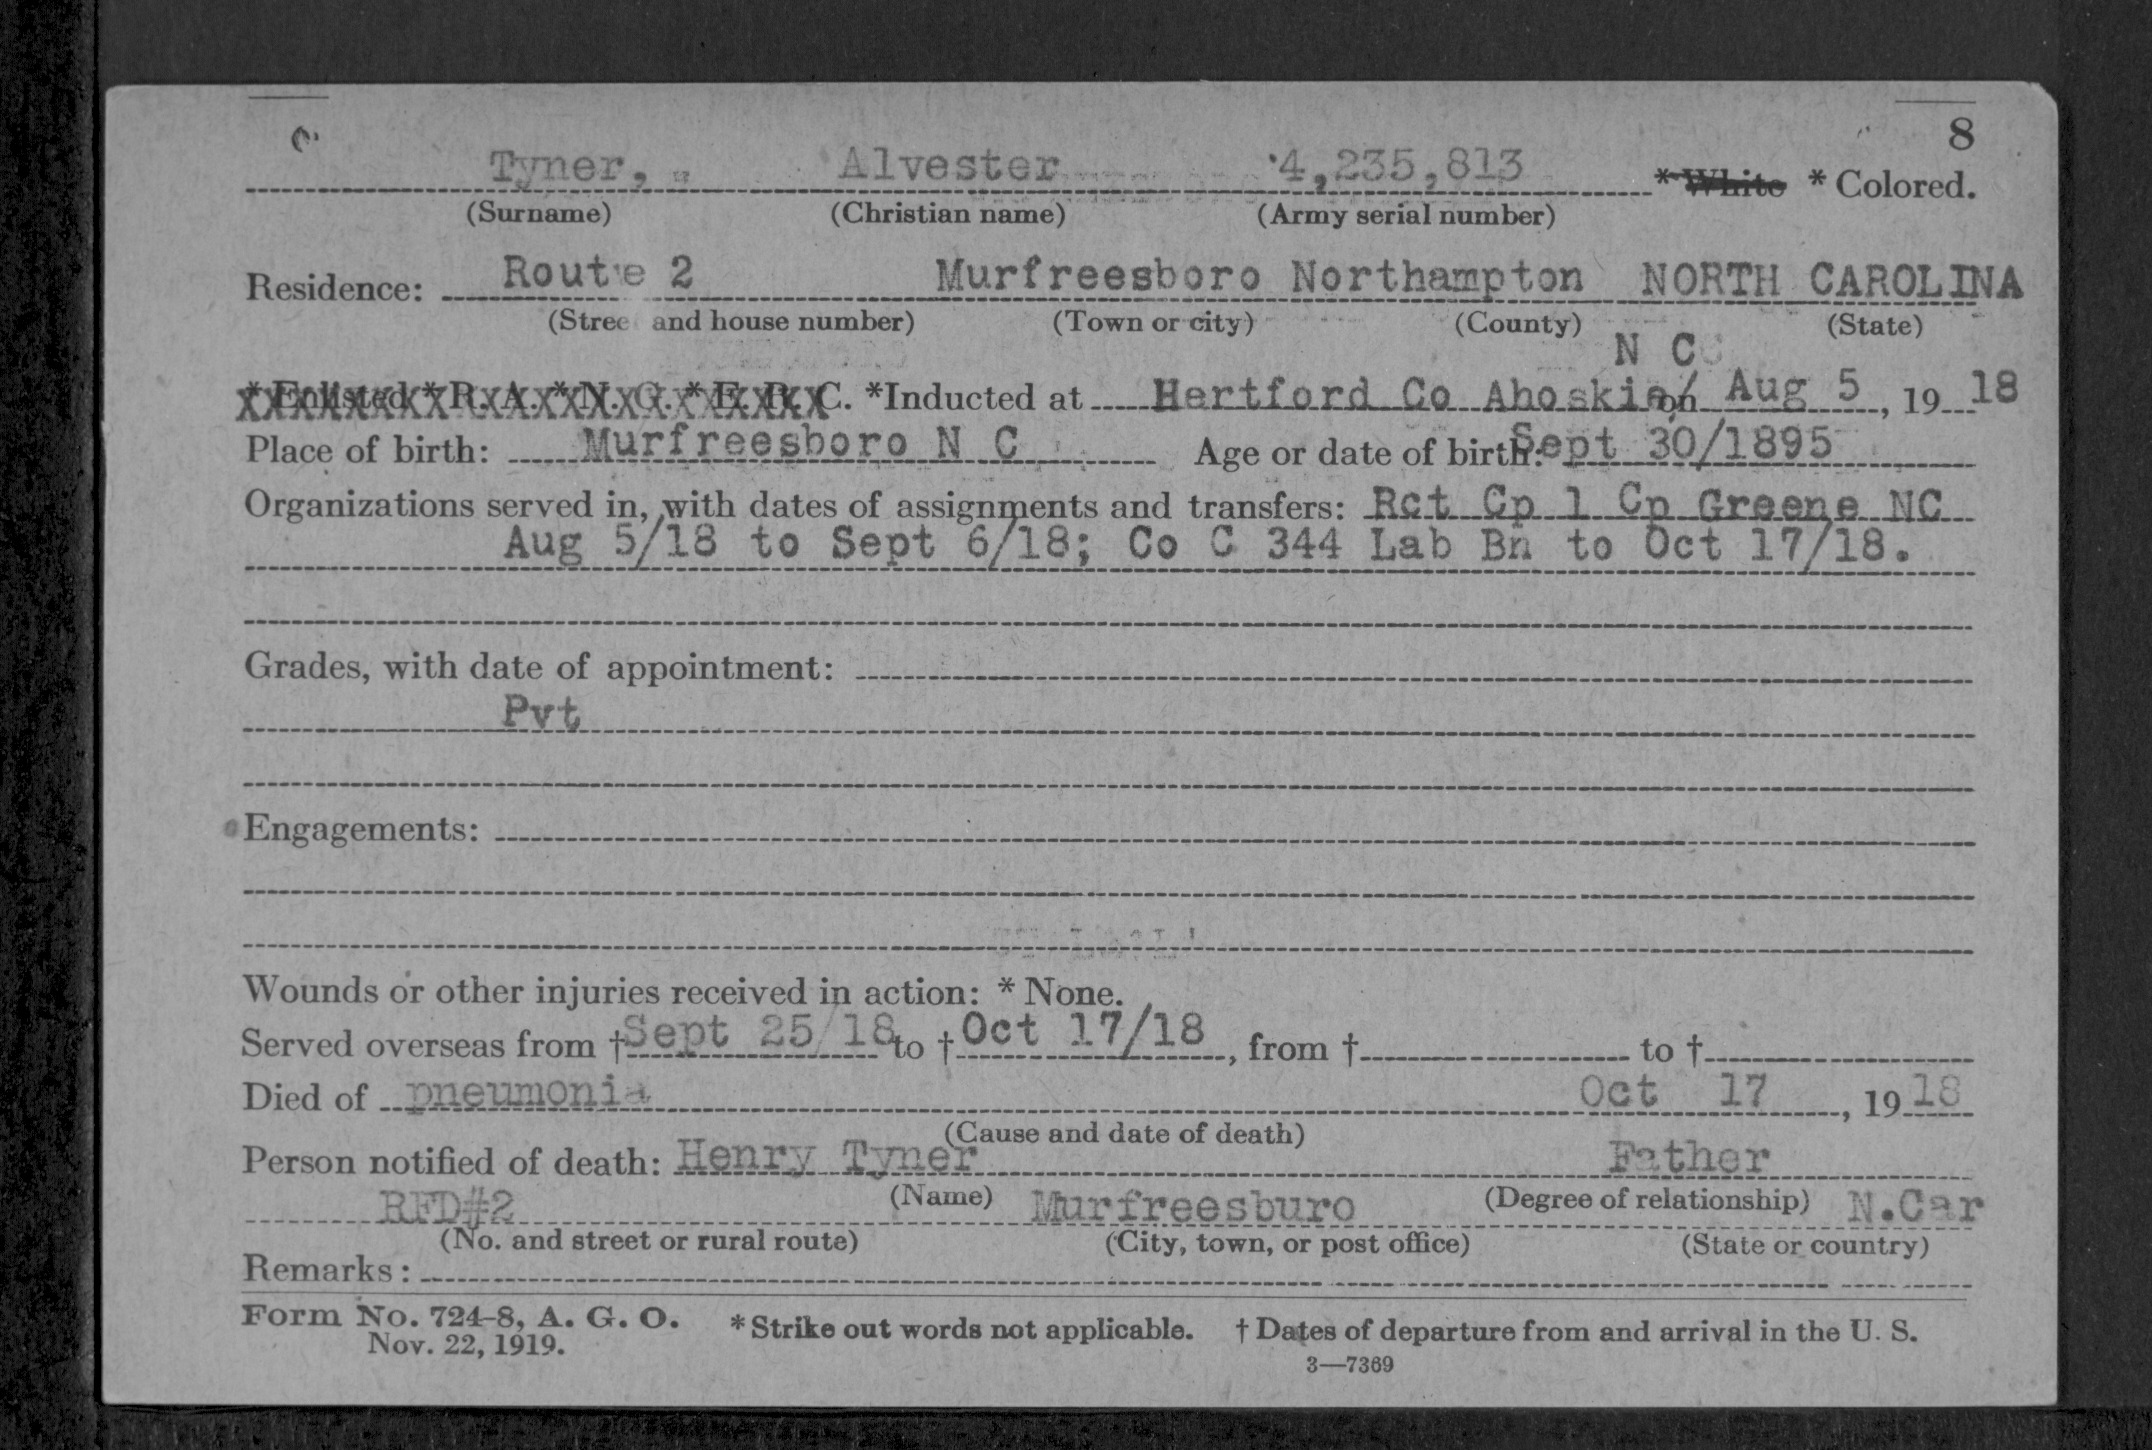 C. 8
Tyner, Alvester 4,235,813 *White *Colored.
(Surname) (Christian name) (Army serial number)
Residence: Route 2 Murfreesboro Northampton NORTH CAROLINA
(Street and house number) (Town or city) (County) (State)
N C
*Enlisted *R. A. *N. G. *E. R. C. *Inducted at Hertford Co Ahoskie/ on Aug 5, 1918
Place of birth: Murfreesboro N C Age or date of birth: Sept 30/1895
Organizations served in, with dates of assignments and transfers: Rct Cp 1 Cp Greene NC
Aug 5/18 to Sept 6/18; Co C 344 Lab Bn to Oct 17/18.
Grades, with date of appointment:
Pvt
Engagements:
Wounds or other injuries received in action: * None.
Served overseas from † Sept 25/18 to † Oct 17/18, from † to †
Died of pneumonia Oct 17, 1918
(Cause and date of death)
Person notified of death: Henry Tyner Father
(Name) (Degree of relationship)
RFD#2 Murfreesburo N.Car
(No. and street or rural route) (City, town, or post office) (State or country)
Remarks:
Form No. 724-8, A. G. O. *Strike out words not applicable. †Dates of departure from and arrival in the U. S.
Nov. 22, 1919.
3—7369